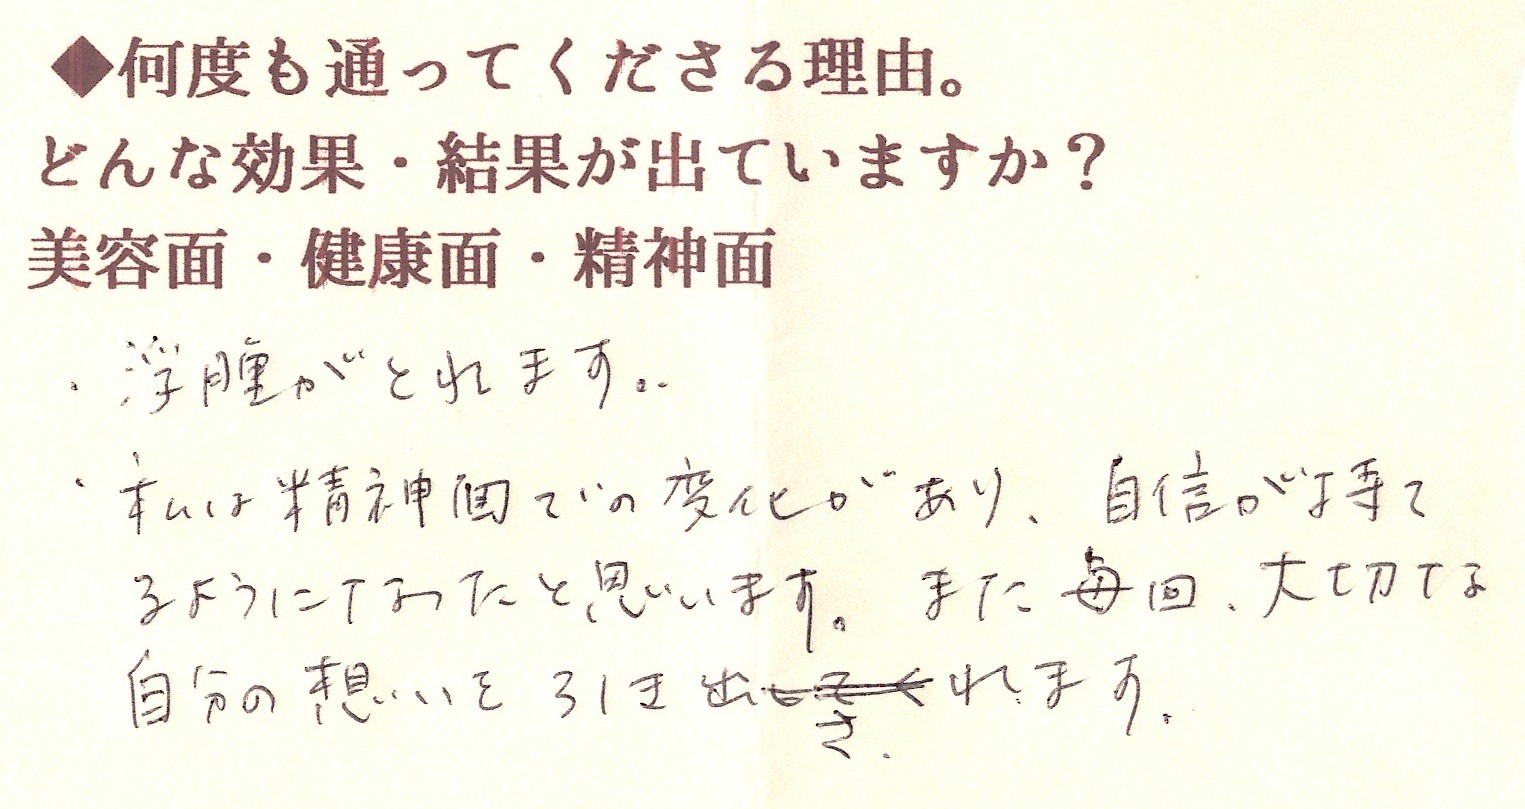 ◆何度も通ってくださる理由。
どんな効果・結果が出ていますか？
美容面・健康面・精神面
・浮腫がとれます。
・私は精神面での変化があり、自信が持て
るようになったと思います。また毎回、大切な
自分の想いを引き出されます。